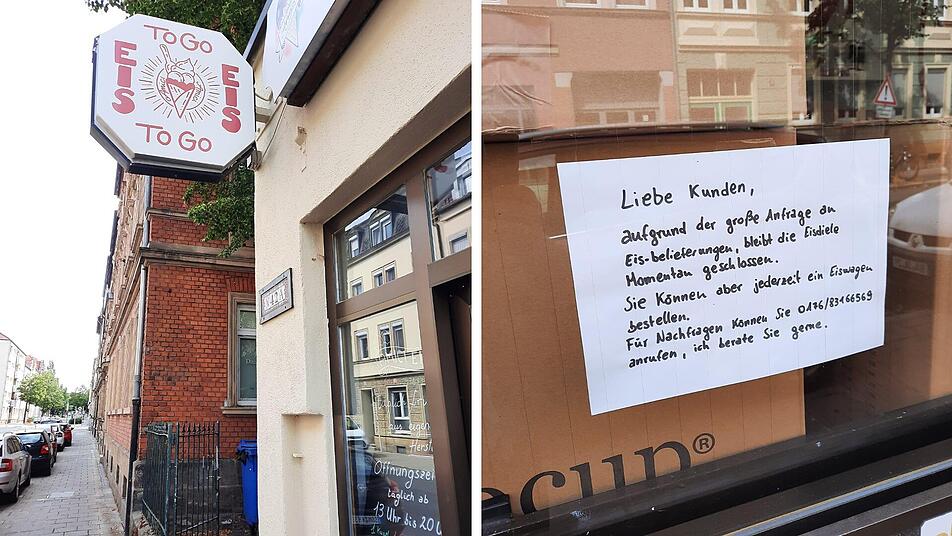 To Go
EIS
EIS
To Go
täglich ab
13 Uhr bis 20 U
Liebe Kunden,
aufgrund der große Anfrage an
Eis-belieferungen, bleibt die Eisdiele
Momentan geschlossen.
Sie Können aber jederzeit ein Eiswagen
bestellen.
Für Nachfragen Können Sie 0176/83166569
anrufen, ich berate Sie gerne.
ecup®